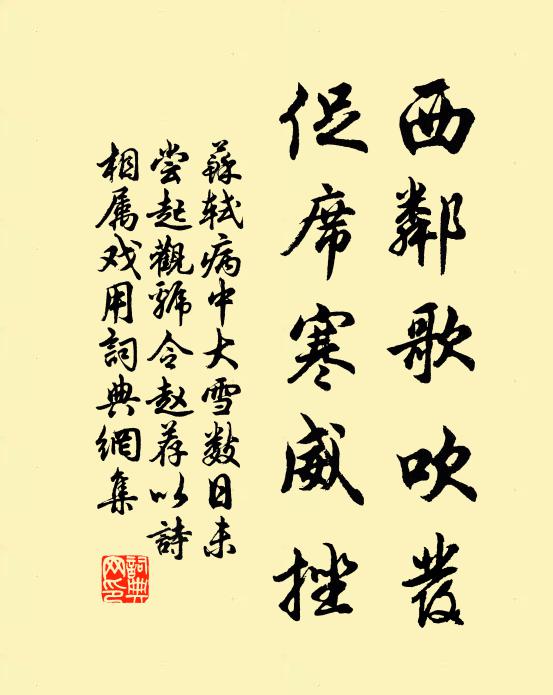 西鄰歌吹發
促席寒威挫
蘇軾病中大雪數日未
嘗起觀虢令赵荐以詩
相属戏用詞典網集
詞典网